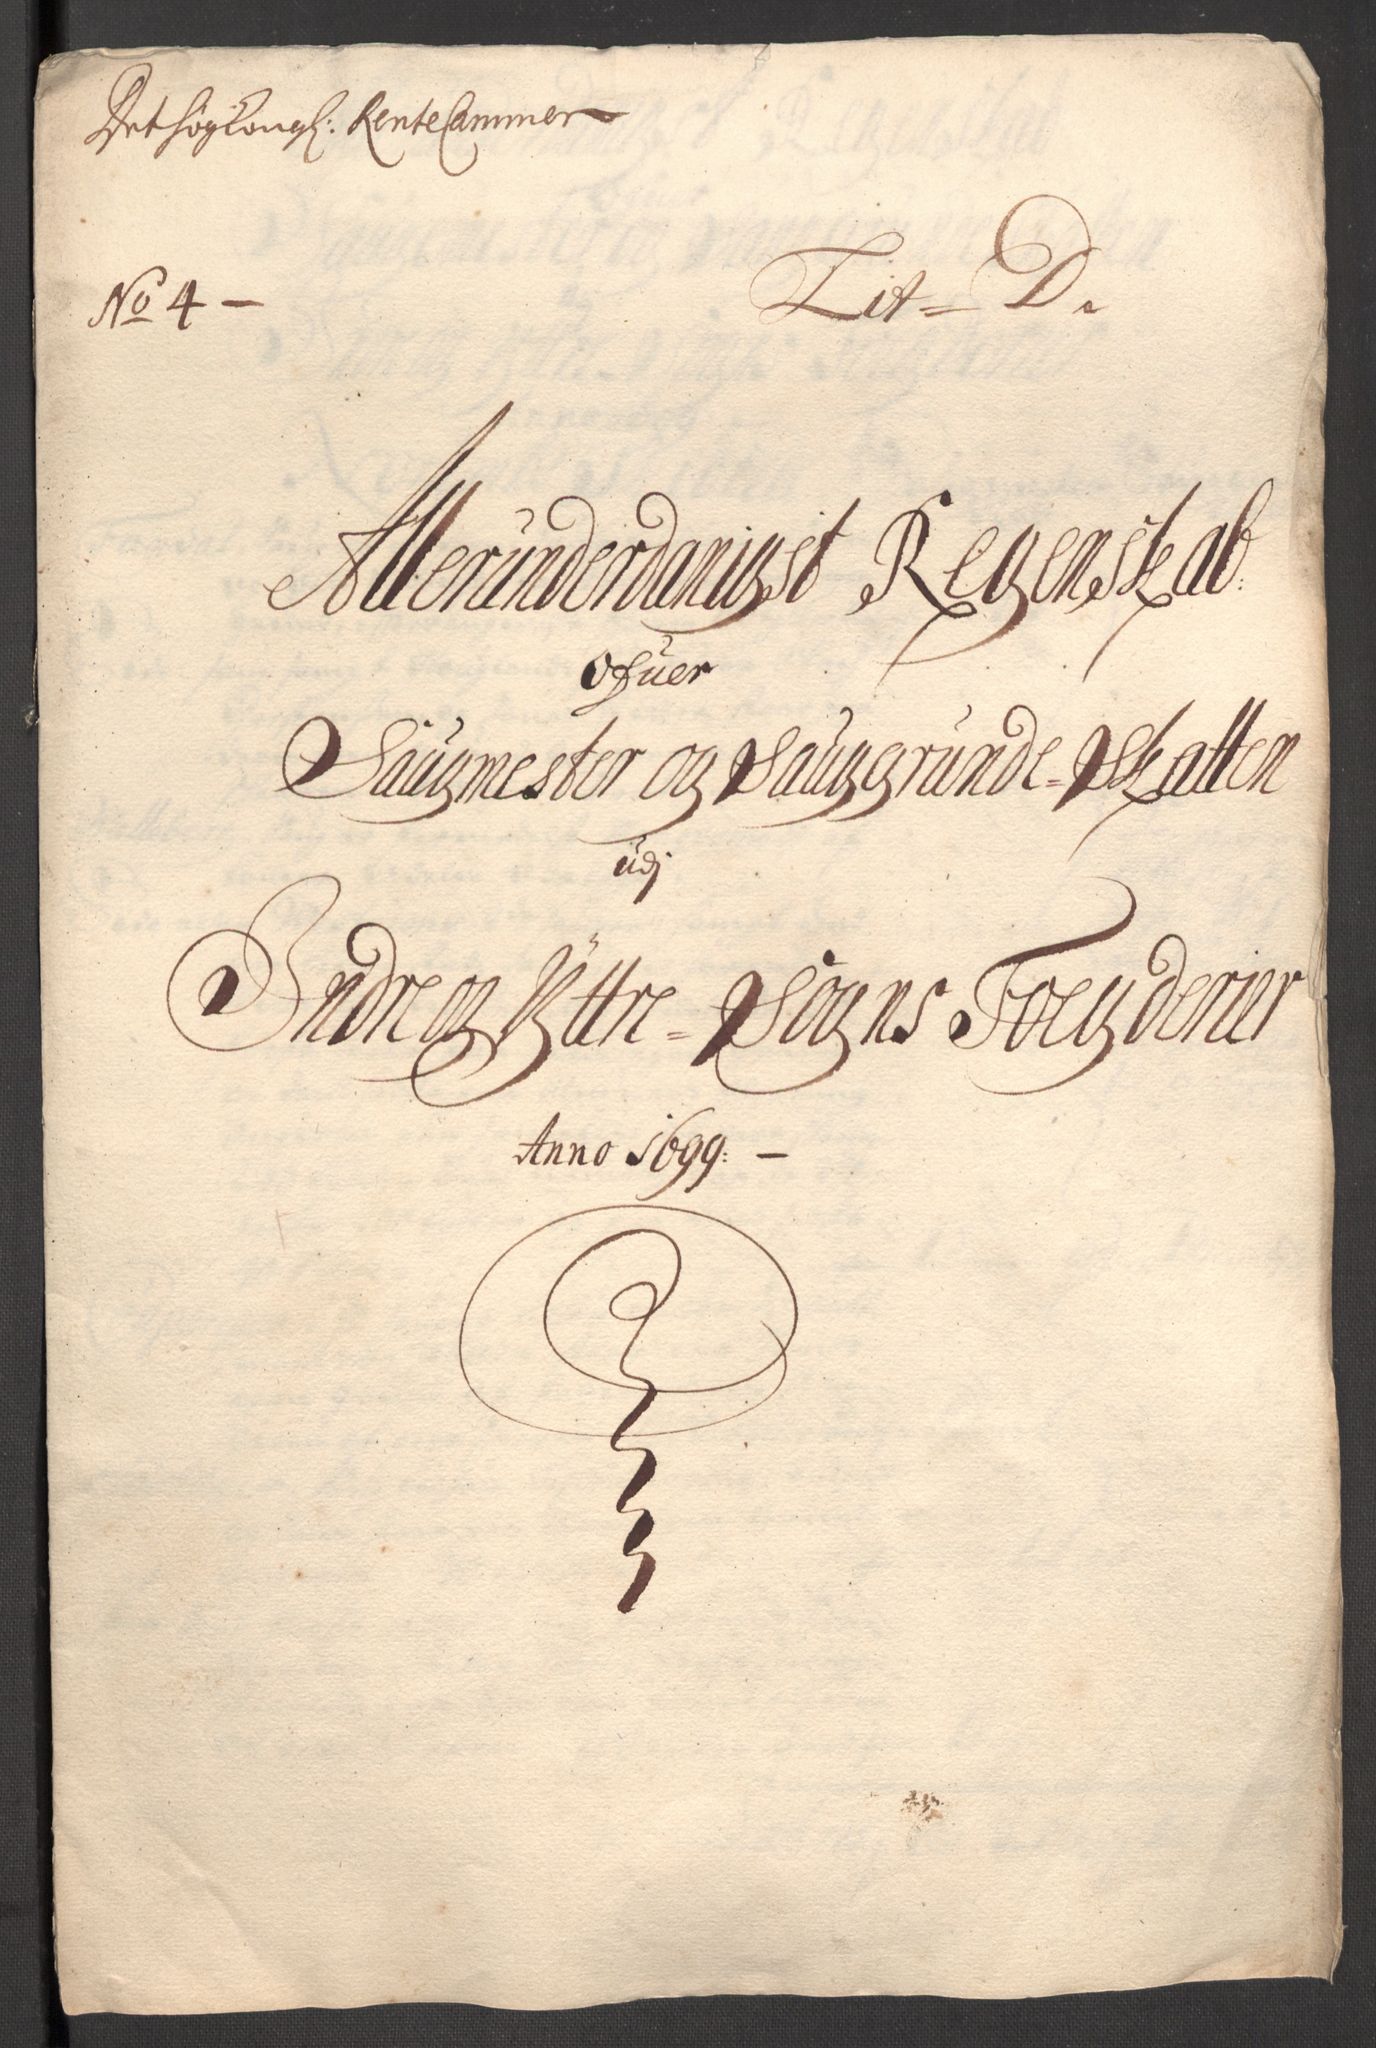 Det høyKongl: Rente Cammer
No 4 —
Lit = D.
Allerunderdanigst Regenskab:
ofuer
Saugmester og Sauggrunde=Skatten
udj
Indre og Yttre=Sogns Foegderier
Anno 1699: —